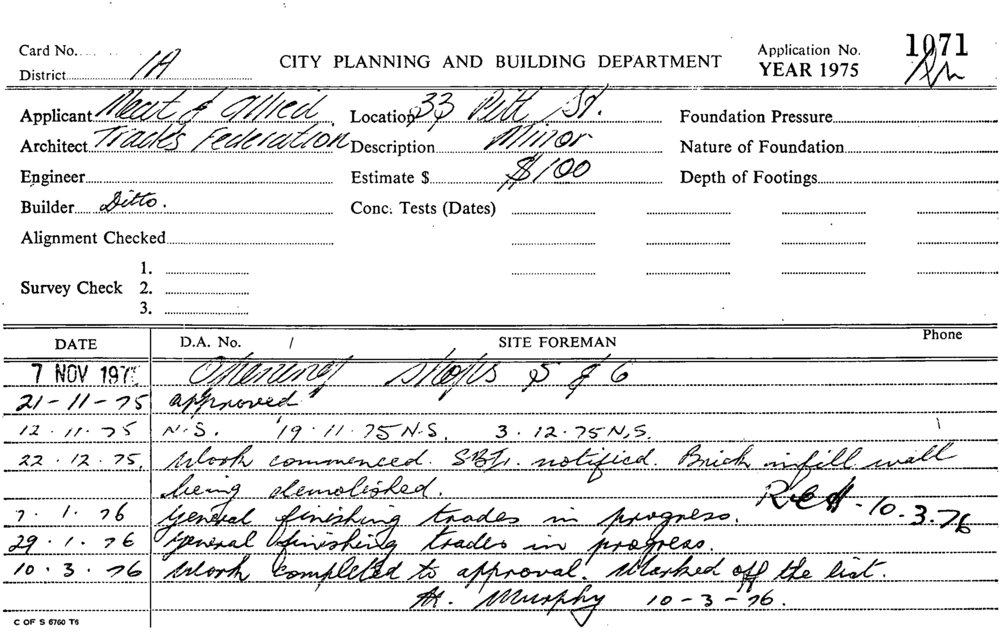 Card No.
District 1A
CITY PLANNING AND BUILDING DEPARTMENT
Application No. 1071
YEAR 1975
Applicant Meat & Allied Location 33 Pitt St. Foundation Pressure
Architect Trades Federation Description Minor Nature of Foundation
Engineer Estimate $ $100 Depth of Footings
Builder Ditto. Conc. Tests (Dates)
Alignment Checked
1.
Survey Check 2.
3.
DATE D.A. No. / SITE FOREMAN Phone
7 NOV 197 Opening shops 5 & 6
21-11-75 approved
12.11.75 N.S. 19.11.75 N.S. 3.12.75 N.S.
22.12.75. Work commenced. notified. Brick infill wall
being demolished.
7.1.76 General finishing trades in progress. 10.3.76
29.1.76 General finishing trades in progress.
10.3.76 Work completed to approval. Marked off the list.
Murphy 10-3-76.
C OF S 6760 T6